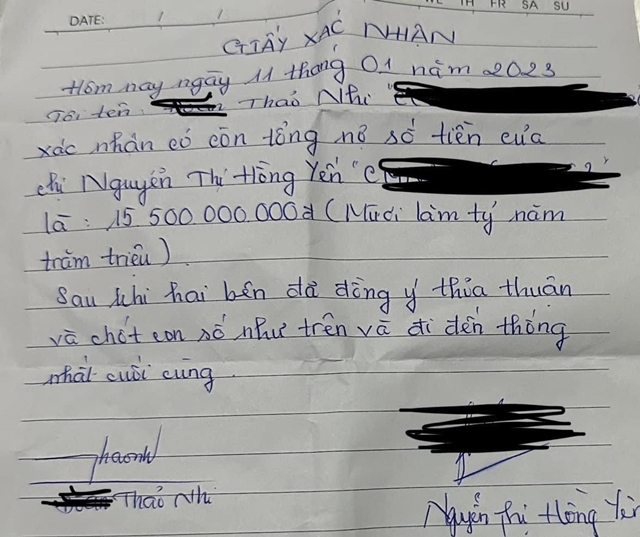 DATE: / / TH FR SA SU
GIẤY XÁC NHẬN
Hôm nay ngày 11 tháng 01 năm 2023
Tôi tên: Thảo Nhi "C
xác nhận có còn tổng nợ số tiền của
chị Nguyễn Thị Hồng Yến "C
là : 15 500 000 000đ (Mười lăm tỷ năm
trăm triệu)
Sau khi hai bên đã đồng ý thỏa thuận
và chốt con số như trên và đi đến thống
nhất cuối cùng.
Thảo Nhi
Nguyễn Thị Hồng Yến